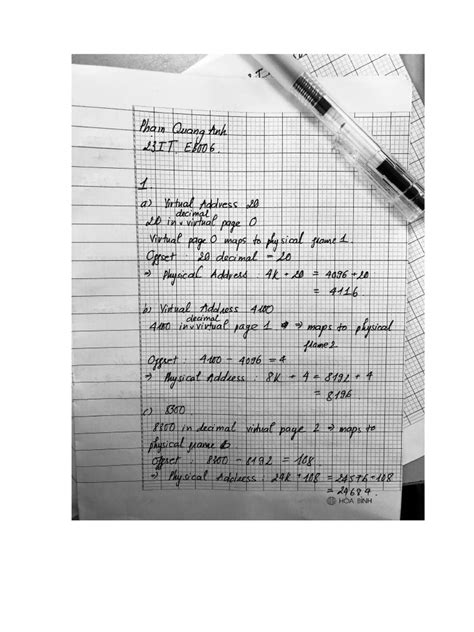 Phạm Quang Anh
23IT.EB006.
1
a) Virtual Address 20
decimal
20 in v virtual page 0
Virtual page 0 maps to physical frame 1.
Offset : 20 decimal = 20
⇒ Physical Address : 4K + 20 = 4096 + 20
= 4116.
b) Virtual Address 4100
decimal
4100 in v virtual page 1 ⇒ maps to physical
frame 2
Offset : 4100 - 4096 = 4
⇒ Physical Address 8K + 4 = 8192 + 4
= 8196
c) 8300
8300 in decimal virtual page 2 ⇒ maps to
physical frame 6
Offset : 8300 - 8192 = 108
⇒ Physical Address : 24K + 108 = 24576 + 108
= 24684.
HÒA BÌNH